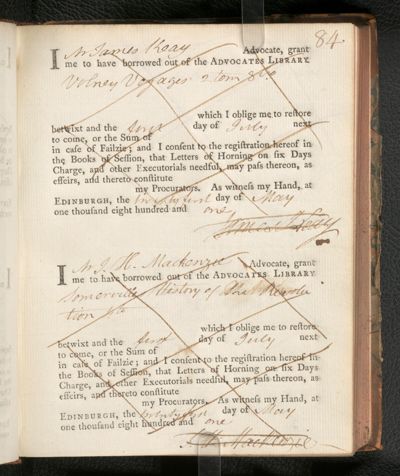 84
I Mr James Keay Advocate, grant
me to have borrowed out of the ADVOCATES LIBRARY
Volney Voyages 2 tom 8vo
which I oblige me to reſtore
betwixt and the first day of July next
to come, or the Sum of
in caſe of Failzie; and I conſent to the regiſtration hereof in
the Books of Seſſion, that Letters of Horning on ſix Days
Charge, and other Executorials needful, may paſs thereon, as
effeirs, and thereto conſtitute
my Procurators. As witneſs my Hand, at
EDINBURGH, the twenty first day of May
one thouſand eight hundred and one
James Keay
I Mr J. H. Mackenzie Advocate, grant
me to have borrowed out of the ADVOCATES LIBRARY
Somerville History of the Revolu
tion 4to
which I oblige me to reſtore
betwixt and the first day of July next
to come, or the Sum of
in caſe of Failzie; and I conſent to the regiſtration hereof in
the Books of Seſſion, that Letters of Horning on ſix Days
Charge, and other Executorials needful, may paſs thereon, as
effeirs, and thereto conſtitute
my Procurators. As witneſs my Hand, at
EDINBURGH, the day of May
one thouſand eight hundred and one
Mackenzie